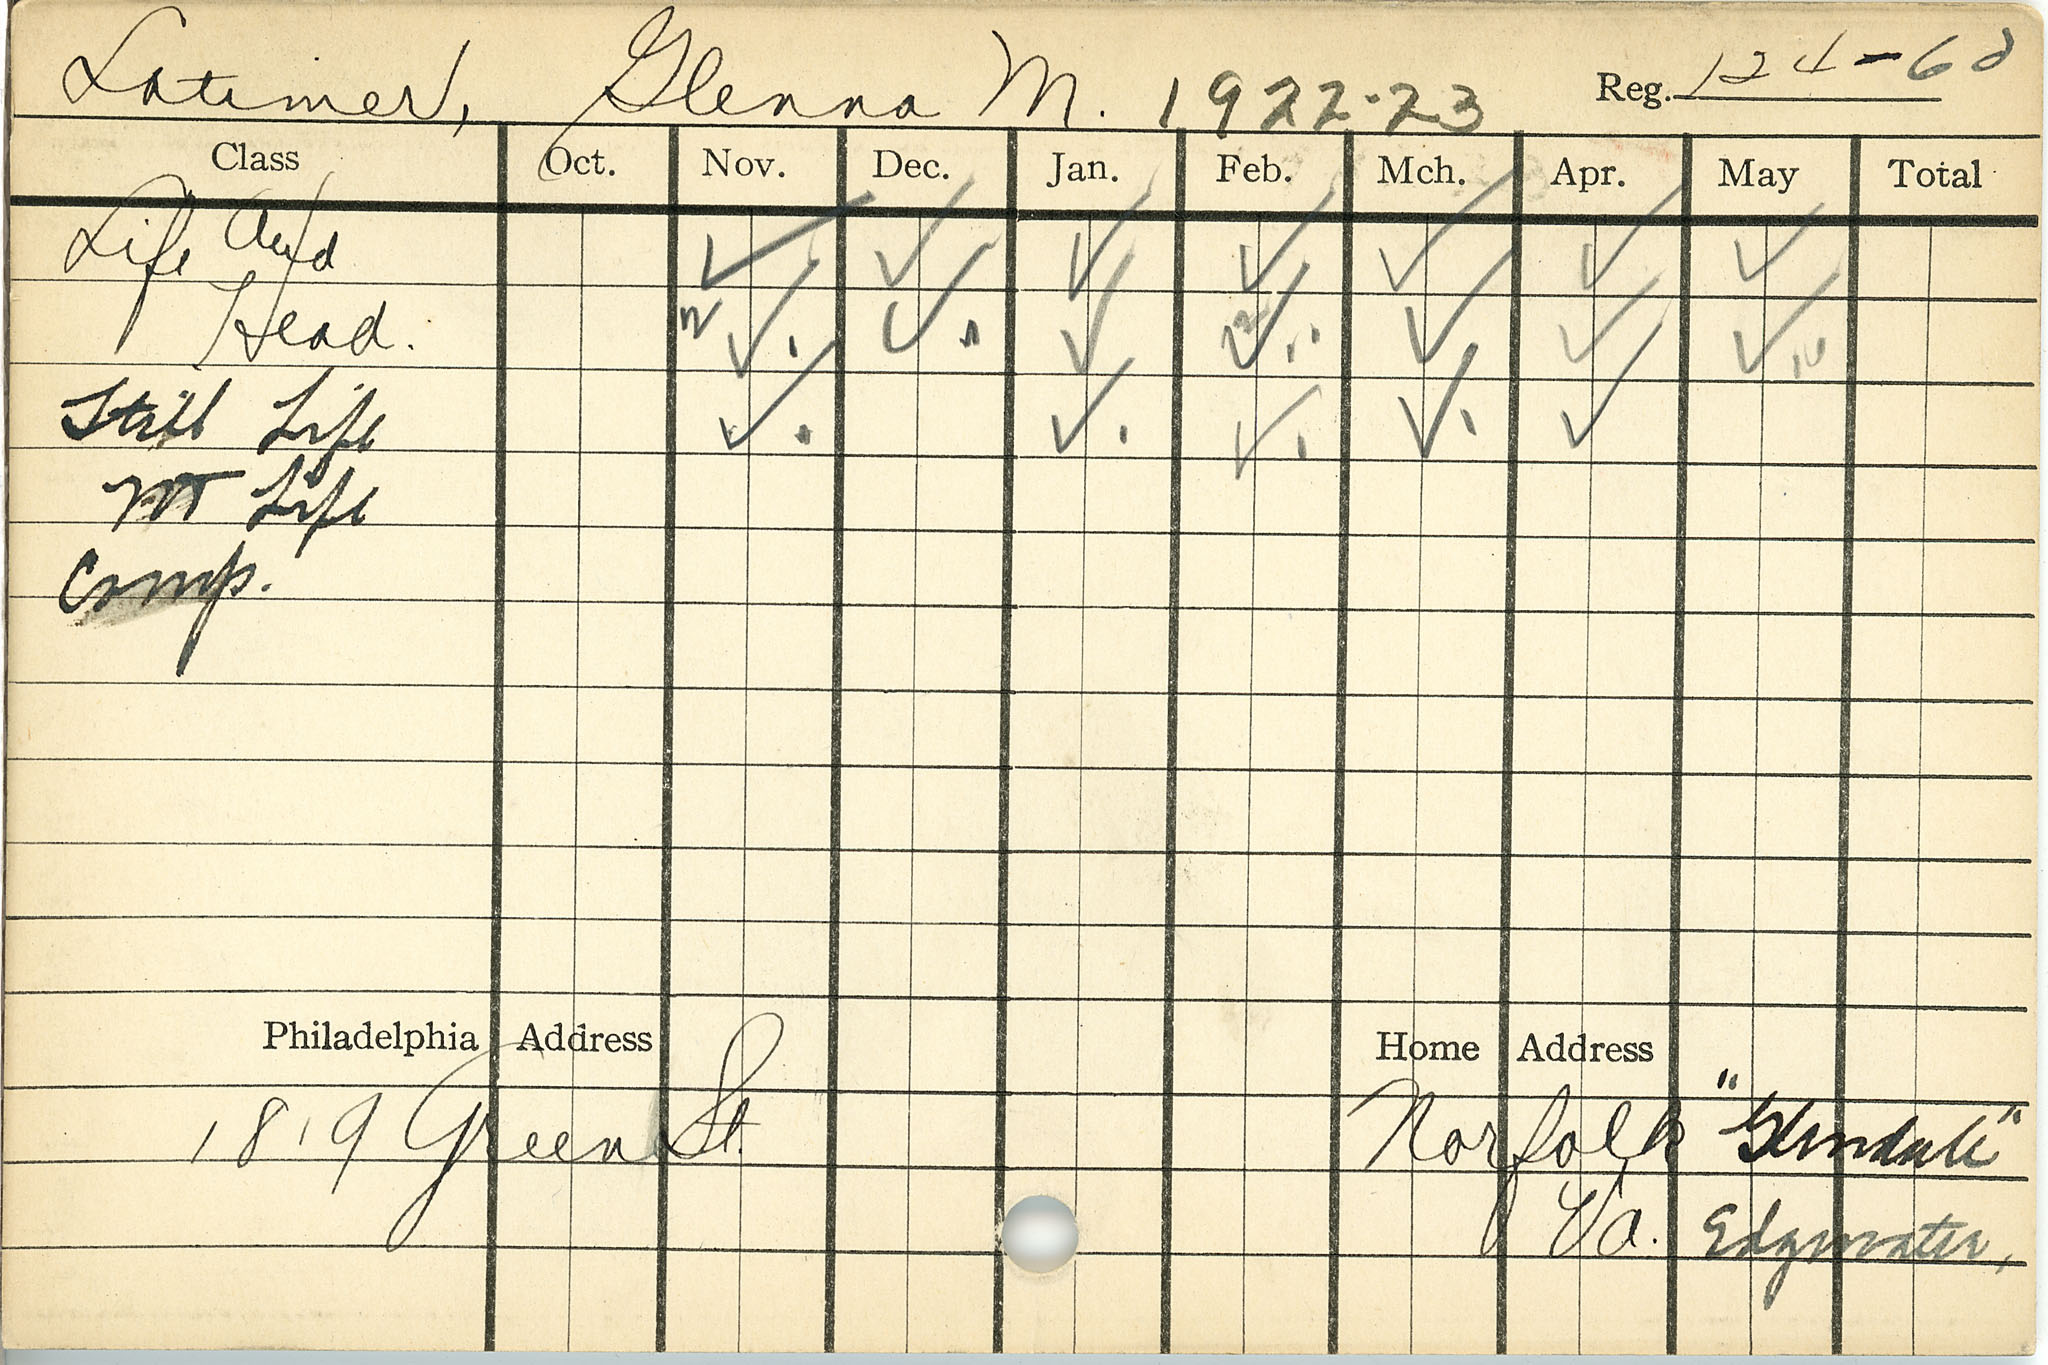 Latimer, Glenna M. 1922-23 Reg. 124-68
Class Oct. Nov. Dec. Jan. Feb. Mch. Apr. May Total
Life And
Head.
Still Life
NT Life
Comp.
Philadelphia Address Home Address
1819 Green St. Norfolk "Glendale"
Va. Edgewater,